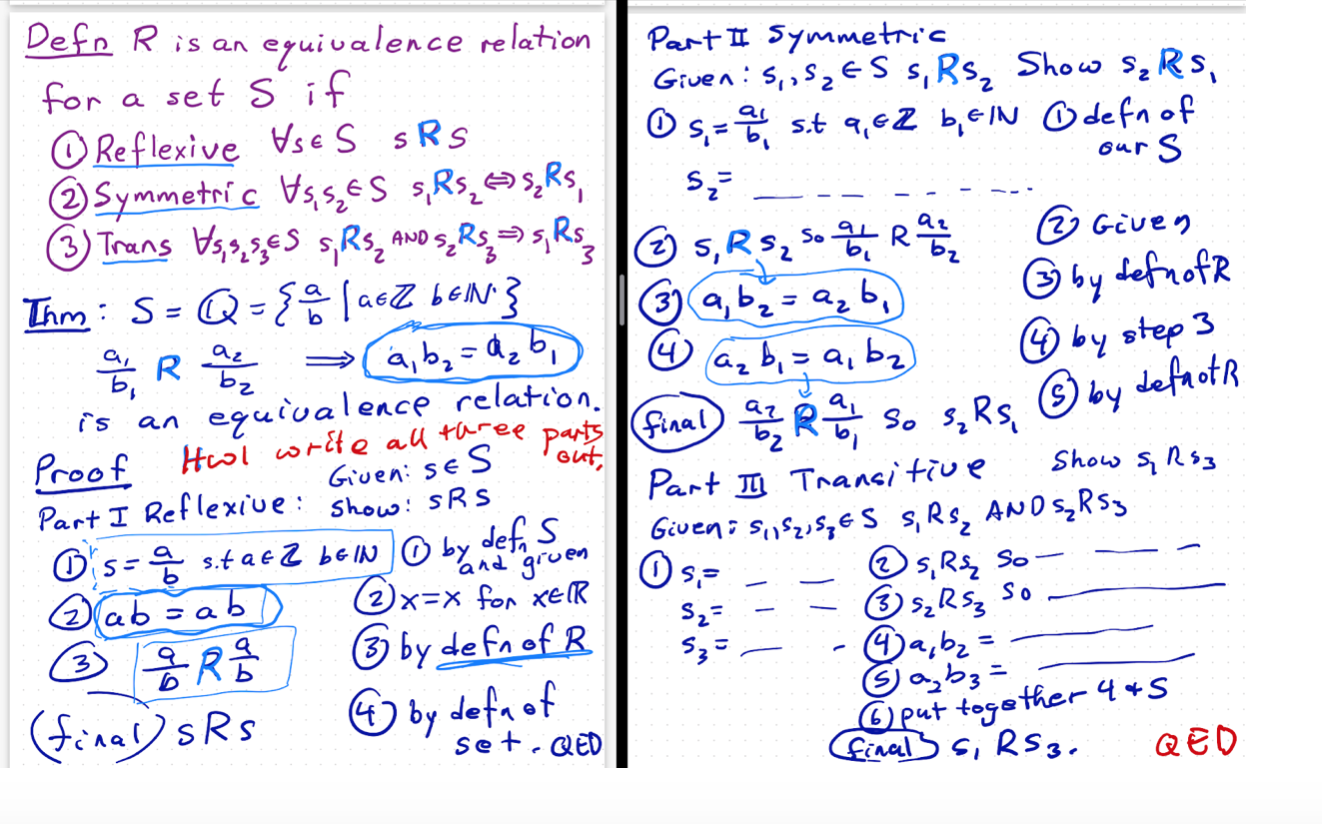 Defn R is an equivalence relation
for a set S if
① Reflexive ∀s∈S sRs
② Symmetric ∀s₁s₂∈S s₁Rs₂⇔s₂Rs₁
③ Trans ∀s₁s₂s₃∈S s₁Rs₂ AND s₂Rs₃⇒s₁Rs₃
Thm: S = ℚ = {a/b | a∈ℤ b∈ℕ}
a₁/b₁ R a₂/b₂ ⟹ a₁b₂ = a₂b₁
is an equivalence relation.
Proof Hwl write all three parts out,
Given: s∈S
Part I Reflexive: Show: sRs
① s = a/b s.t a∈ℤ b∈ℕ ① by defn S and given
② ab = ab ② x=x for x∈ℝ
③ a/b R a/b ③ by defn of R
(final) sRs ④ by defn of set. QED
Part II Symmetric
Given: s₁,s₂∈S s₁Rs₂ Show s₂Rs₁
① s₁ = a₁/b₁ s.t a₁∈ℤ b₁∈ℕ ① defn of our S
s₂ = _ _ _ _ _ _
② s₁Rs₂ so a₁/b₁ R a₂/b₂ ② Given
③ a₁b₂ = a₂b₁ ③ by defn of R
④ a₂b₁ = a₁b₂ ④ by step 3
final a₂/b₂ R a₁/b₁ so s₂Rs₁ ⑤ by defn of R
Part III Transitive Show s₁Rs₃
Given: s₁,s₂,s₃∈S s₁Rs₂ AND s₂Rs₃
① s₁ = _ _ ② s₁Rs₂ so _ _ _
s₂ = _ _ ③ s₂Rs₃ so _
s₃ = _ - ④ a₁b₂ = _
⑤ a₂b₃ = _
⑥ put together 4 + 5
final s₁Rs₃. QED